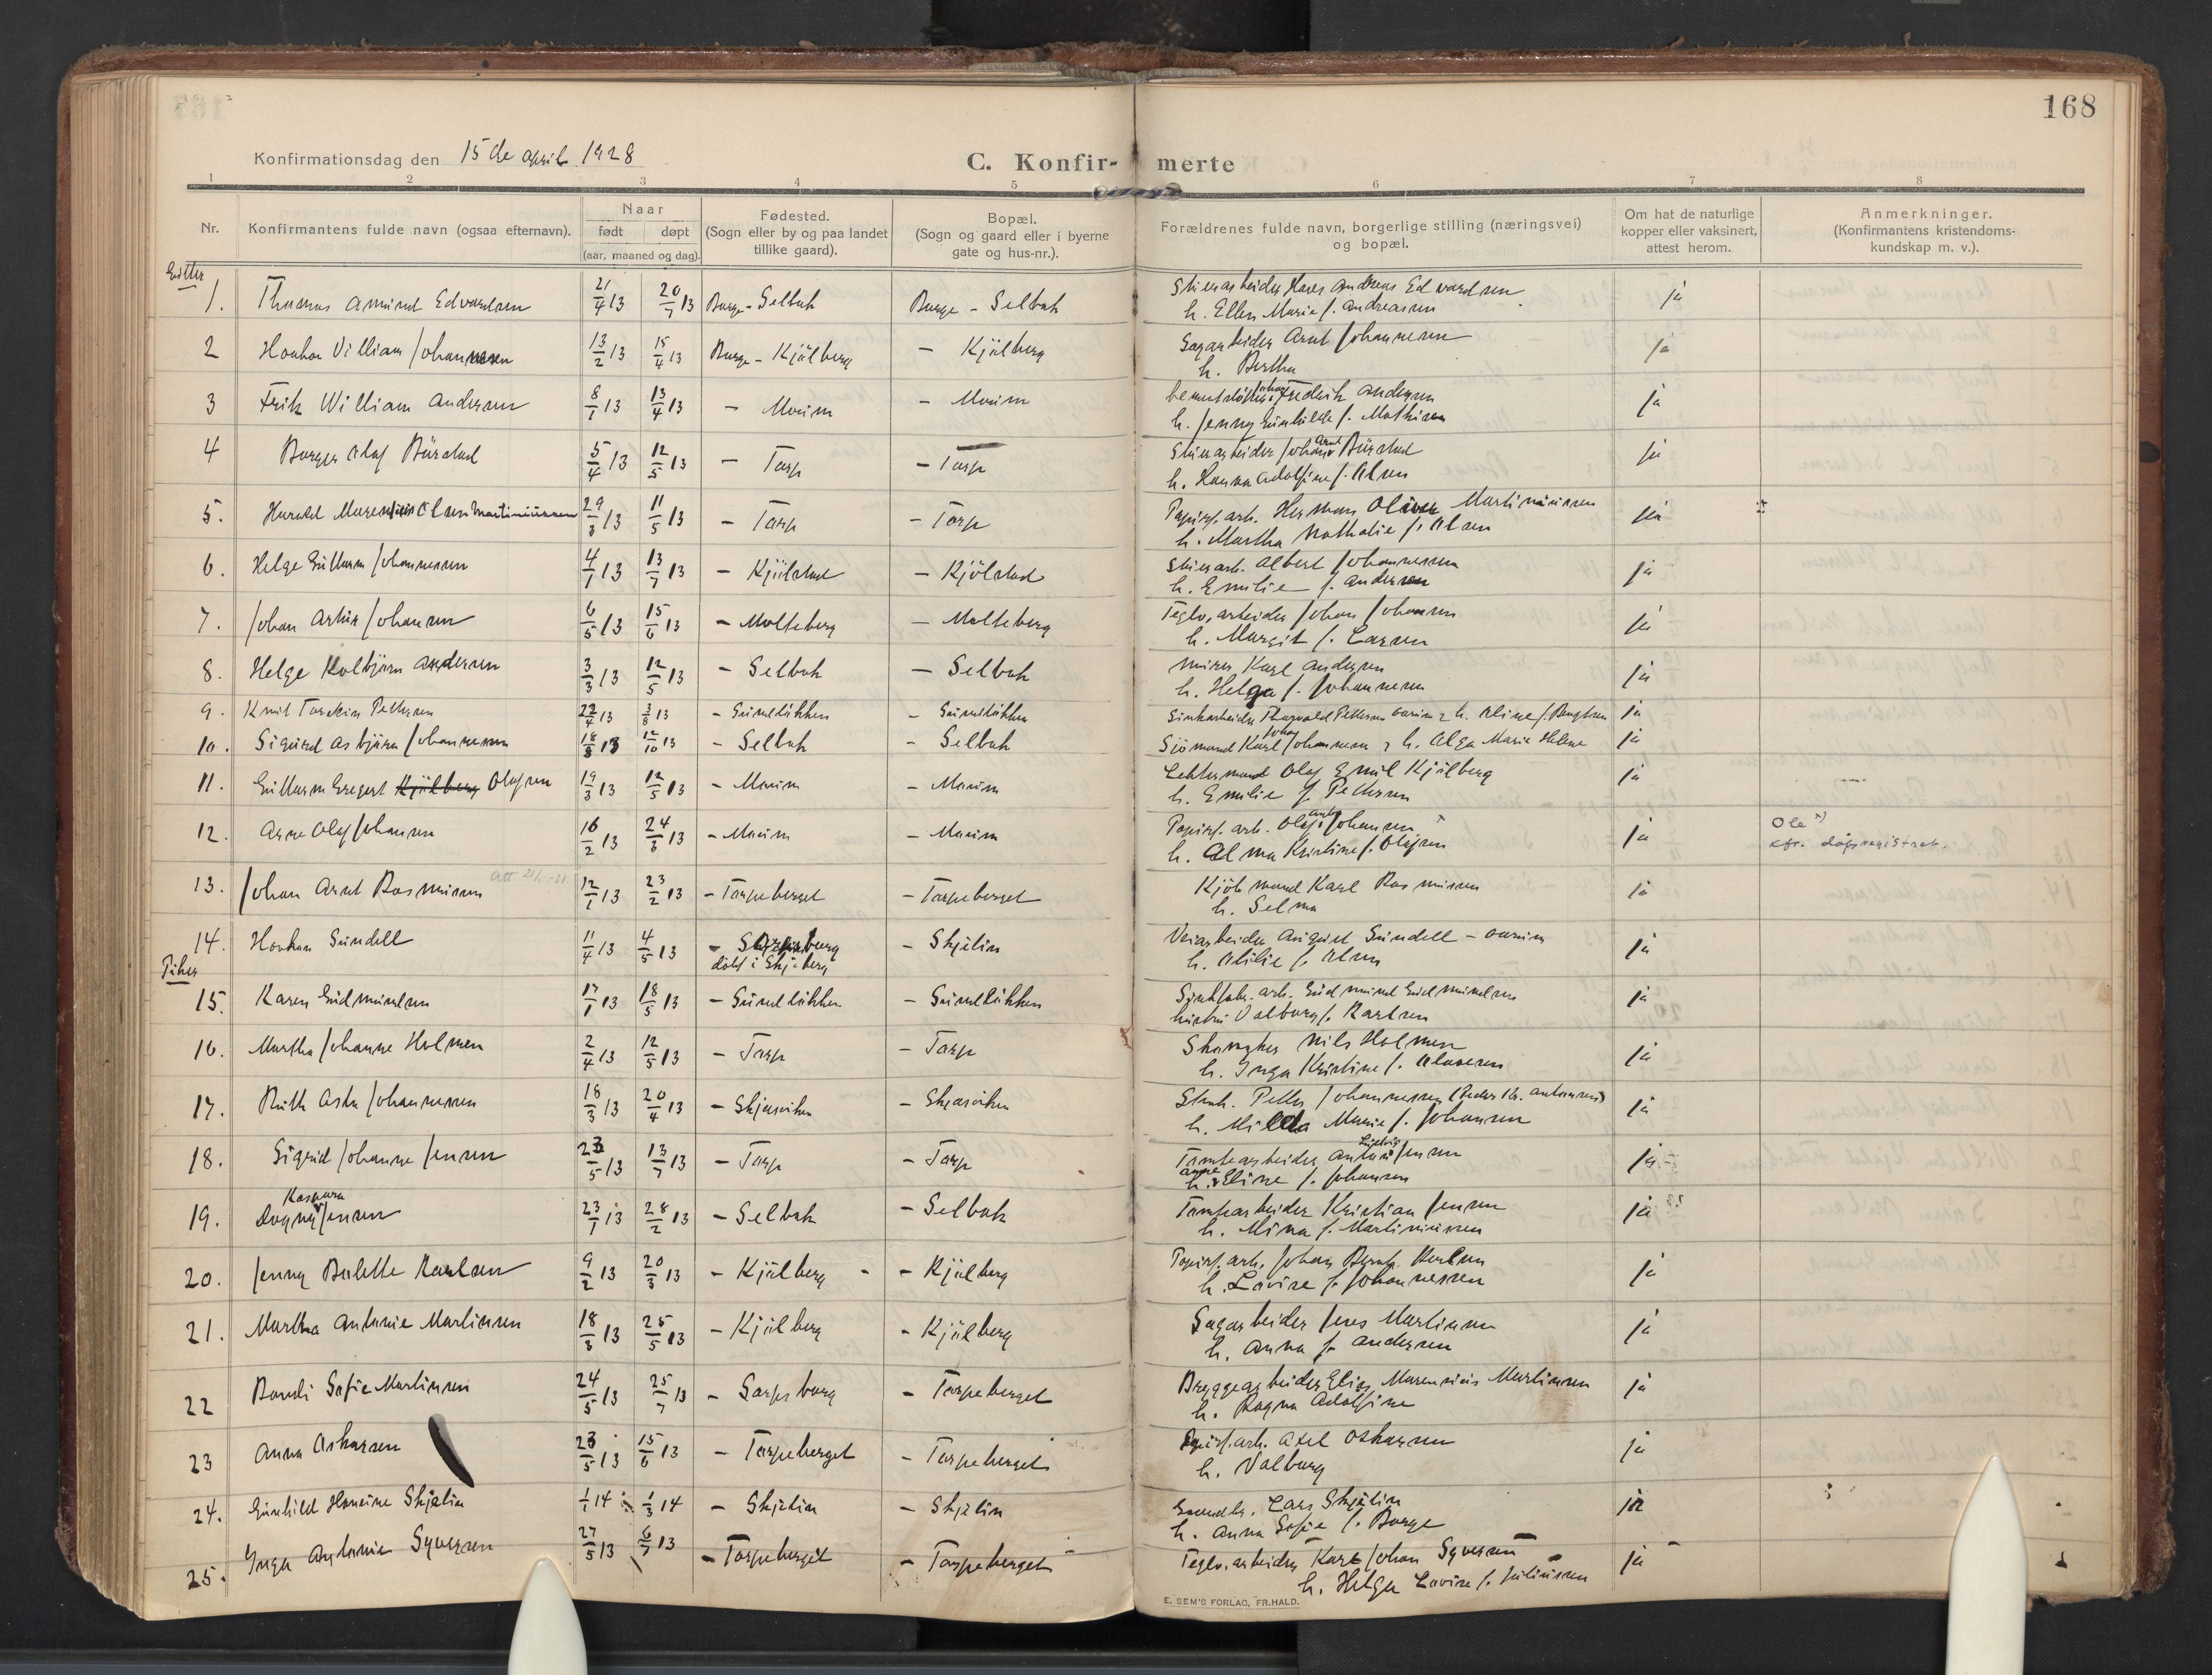 168
Konfirmationsdag den 15 de april 1928
C. Konfir- merte
1 2 3 4 5 6 7 8
Nr.
Konfirmantens fulde navn (ogsaa efternavn).
Naar
født døpt
(aar, maaned og dag).
Fødested.
(Sogn eller by og paa landet
tillike gaard).
Bopæl.
(Sogn og gaard eller i byerne
gate og hus-nr.).
Forældrenes fulde navn, borgerlige stilling (næringsvei)
og bopæl.
Om hat de naturlige
kopper eller vaksinert,
attest herom.
Anmerkninger.
(Konfirmantens kristendoms-
kundskap m. v.).
Gutter
1. Thomas Amund Edvardsen 21/4 13 20/7 13 Borge - Selbak Borge - Selbak Stenarbeider Hans Andreas Edvardsen ja
h. Ellen Marie f. Andreassen
2 Haakon Villiam Johannesen 13/2 13 15/4 13 Borge - Kjölberg - Kjölberg Sagarbeider Arnt Johannesen ja
h. Bertha
3 Frik William Andersen 8/1 13 13/4 13 - Moum - Moum Fredrik Andersen ja
h. Jenny Gunhilde f. Mathisen
4 Borger Olaf Buskstad 5/4 13 12/5 13 - Torp - Torp Stenarbeider Johan Arnt ja
h. Hanna Adolfine f. Olsen
5. Harald Martiniussen 29/3 13 11/5 13 - Torp - Torp Papirf. arb. Herman Oliver Martiniussen ja
h. Martha Nathalie f. Olsen
6. Helge Guttorm Johannessen 4/1 13 13/7 13 - Kjölstad - Kjölstad Stenarb. Albert Johannessen ja
h. Emilie f. Andersen
7. Johan Artur Johansen 6/5 13 15/6 13 - Molteberg - Molteberg Teglv. arbeider Johan Johansen ja
h. Margit f. Larsen
8. Helge Kolbjörn Andersen 3/3 13 12/5 13 - Selbak - Selbak Murer Karl Andersen ja
h. Helga f. Johannesen
9. Knut Torstein Pettersen 22/4 13 3/8 13 - Sundlökken - Sundlökken Sinkarbeider Thorvald Pettersen h. Oline f. Bengtsen ja
10. Sigurd Asbjörn Johannessen 18/8 13 12/10 13 - Selbak - Selbak Sjömand Karl Johan Johannesen h. Olga Marie Helene ja
11. Guttorm Gregert Kjölberg Olafsen 19/3 13 12/5 13 - Moum - Moum Lektermand Olaf Emil Kjölberg ja
h. Emilie f. Pettersen
12. Arne Olaf Johansen 16/2 13 24/3 13 - Moum - Moum Papirf. arb. Olaf Johansen ja Ole x)
h. Alma Kristine f. Olafsen cfr. dåpsregistret.
13. Johan Arnt Rasmussen 12/1 13 23/2 13 - Torpeberget - Torpeberget Kjöbmand Karl Rasmussen ja
h. Selma
14. Haakon Sundell 11/4 13 4/5 13 - Sarpsborg - Skjelin Veiarbeider August Sundell ja
döbt i Skjeberg h. Otilie f. Olsen
Piker
15. Karen Gudmundsen 17/1 13 18/5 13 - Sundlökken - Sundlökken Sinkfabr. arb. Gudmund Gudmundsen ja
hustru Valborg f. Karlsen
16. Martha Johanne Holmen 2/4 13 12/5 13 - Torp - Torp Skomaker Nils Holmen ja
h. Inga Kristine f. Olavesen
17. Ruth Asta Johannessen 18/3 13 20/4 13 - Skjæviken - Skjæviken Stenh. Petter Johannessen (Peder Kr. Antonsen) ja
h. Milda Marie f. Johansen
18. Sigrid Johanne Jensen 23/5 13 13/7 13 - Torp - Torp Tomtearbeider Anton Ludvig Jensen ja
h. Anne Eline f. Johansen
19. Dagny Kaspara Jensen 23/1 13 28/2 13 - Selbak - Selbak Tomtearbeider Kristian Jensen ja
h. Mina f. Martiniussen
20. Jenny Bolette Karlsen 9/2 13 20/3 13 - Kjölberg - Kjölberg Papirf. arb. Johan Bernh. Karlsen ja
h. Lovise f. Johannessen
21. Martha Antonie Martinsen 18/3 13 25/5 13 - Kjölberg - Kjölberg Sagarbeider Jens Martinsen ja
h. Anna f. Andersen
22 Bardi Sofie Martinsen 24/5 13 25/7 13 - Sarpsborg - Torpeberget Bryggearbeider Elias Marensius Martinsen ja
h. Ragna Adolfine
23 Anna Oskarsen 23/5 13 15/6 13 - Torpeberget - Torpeberget Papirf. arb. Axel Oskarsen ja
h. Valborg
24. Gunhild Hansine Skjelin 1/1 14 1/3 14 - Skjelin - Skjelin Gaardbr. Lars Skjelin ja
h. Anna Sofie f. Borge
25. Inga Antonie Syversen 27/5 13 6/7 13 - Torpeberget - Torpeberget Teglv. arbeider Karl Johan Syversen ja
h. Helga Lovise f. Juliussen
E. SEM'S FORLAG, FR.HALD.